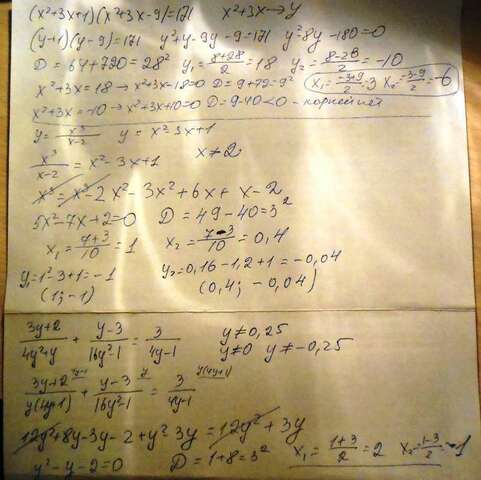 (x²+3x+1)(x²+3x-9)=171 x²+3x→y
(y+1)(y-9)=171 y²+y-9y-9=171 y²-8y-180=0
D=64+720=28² y₁=(8+28)/2=18 y₂=(8-28)/2=-10
x²+3x=18→x²+3x-18=0 D=9+72=9² x₁=(-3+9)/2=3 x₂=(-3-9)/2=-6
x²+3x=-10→x²+3x+10=0 D=9-40<0 - корней нет
y=x³/(x-2) y=x²-3x+1
x³/(x-2)=x²-3x+1 x≠2
x³=x³-2x²-3x²+6x+x-2
5x²-7x+2=0 D=49-40=3²
x₁=(7+3)/10=1 x₂=(7-3)/10=0,4
y₁=1²-3+1=-1 y₂=0,16-1,2+1=-0,04
(1;-1) (0,4; -0,04)
(3y+2)/(4y²+y)+(y-3)/(16y²-1)=3/(4y-1) y≠0,25
y≠0 y≠-0,25
(3y+2)/(y(4y+1))+(y-3)/(16y²-1)=3/(4y-1)
12y²+8y-3y-2+y²-3y=12y²+3y
y²-y-2=0 D=1+8=3² x₁=(1+3)/2=2 x₂=(1-3)/2=-1